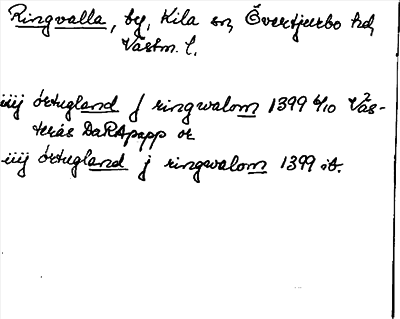 Ringvalla, by, Kila sn, Övertjurbo hd,
Västm. l.
iiij örtugland j ringwalom 1399 6/10 Väs-
terås DaRApapp or
iiij örtugland j ringwalom 1399 ib.